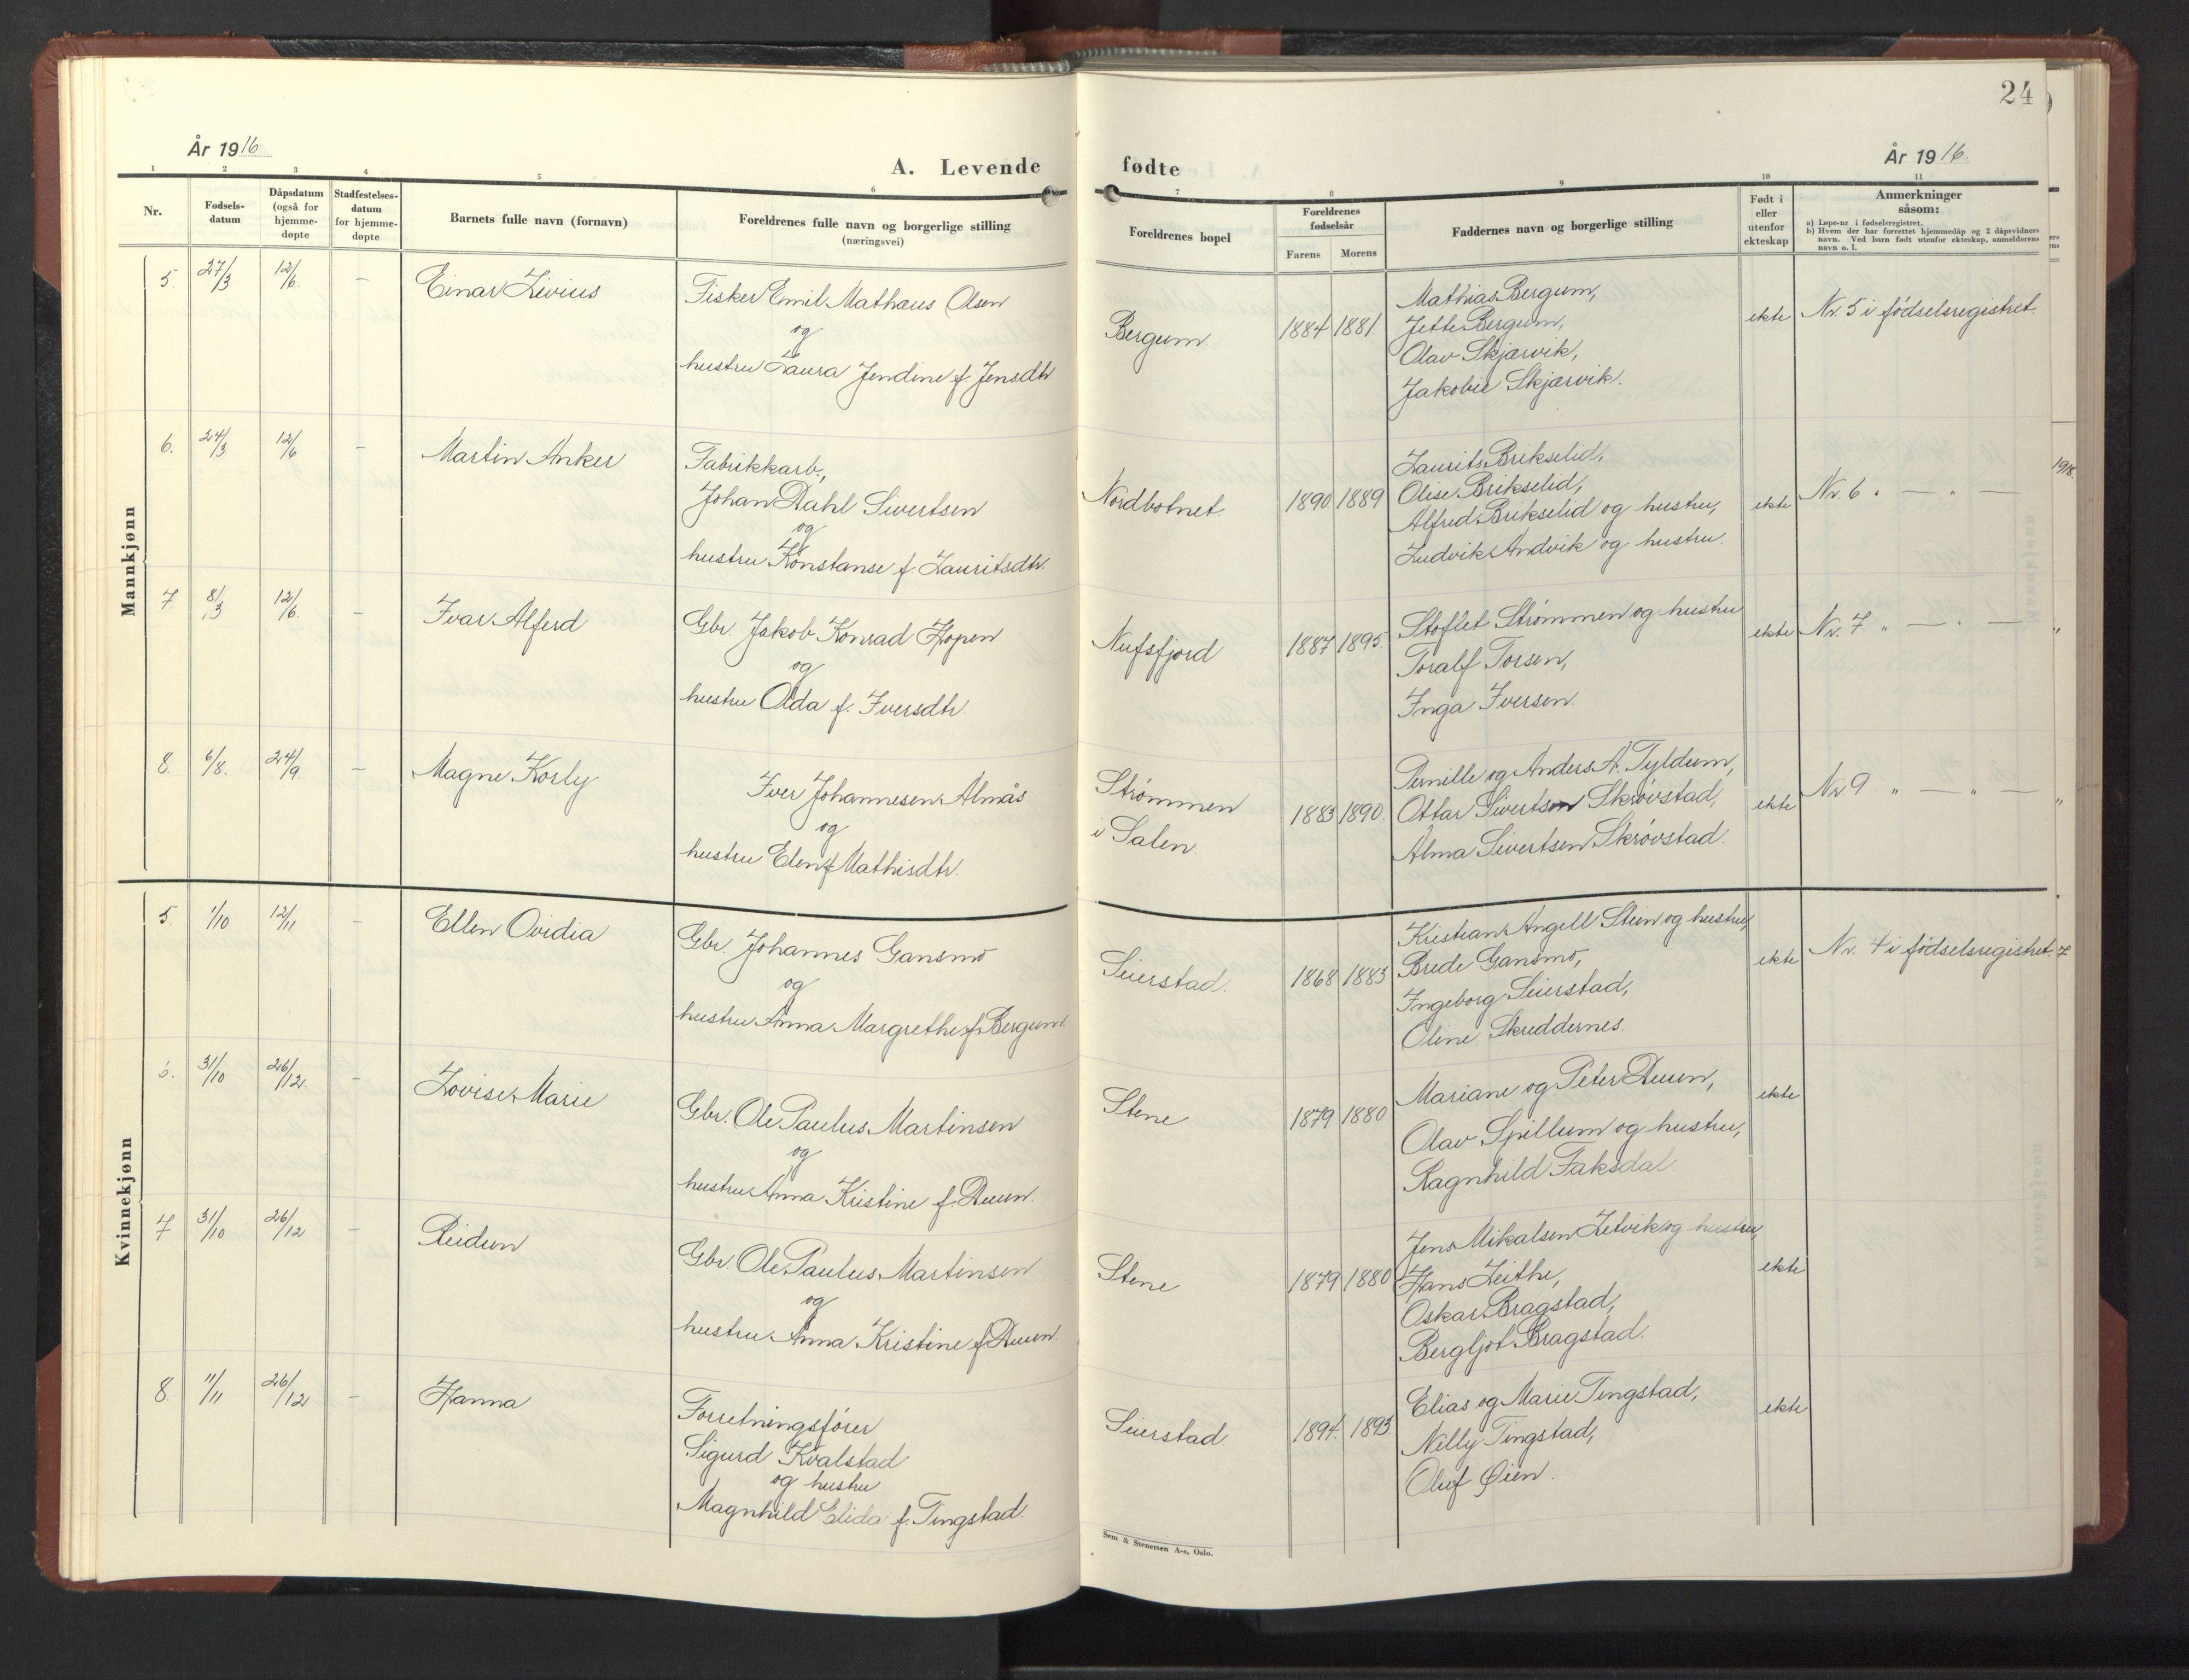 24
År 1916
A. Levende
fødte
År 1916.
1 2 3 4 5 6 7 8 9 10 11
Nr.
Fødsels-
datum
Dåpsdatum
(også for
hjemme-
døpte
Stadfestelses-
datum
for hjemme-
døpte
Barnets fulle navn (fornavn)
Foreldrenes fulle navn og borgerlige stilling
(næringsvei)
Foreldrenes bopel
Foreldrenes
fødselsår
Farens Morens
Faddernes navn og borgerlige stilling
Født i
eller
utenfor
ekteskap
Anmerkninger
såsom:
a) Løpe-nr. i fødselsregistret.
b) Hvem der har forrettet hjemmedåp og 2 dåpsvidners
navn. Ved barn født utenfor ekteskap, anmelderens
navn o. l.
Mannkjønn
5. 27/3 12/6. – Einar Livius
Fisker Emil Mathæus Olsen
og
hustru Laura Jendine f. Jensdtr.
Bergum. 1884 1881.
Mathias Bergum,
Jette Bergum,
Olav Skjærvik,
Jakobie Skjærvik.
ekte Nr. 5 i fødselsregistret.
6. 24/3 12/6 – Martin Anker
Fabrikkarb.,
Johan Dahl Sivertsen
og
hustru Konstanse f. Lauritsdtr.
Nordbotnet. 1890 1889
Laurits Brikselid,
Olise Brikselid,
Alfred Brikselid og hustru,
Ludvik Andvik og hustru.
ekte Nr. 6 " — " —
7. 8/3 12/6. – Ivar Alferd
Gbr. Jakob Konrad Hopen
og
hustru Olda f. Iversdtr.
Nufsfjord 1887 1895.
Stoflet Strømmen og hustru
Toralf Torsen,
Inga Iversen.
ekte Nr. 7 " — " —
8. 6/8. 24/9. – Magne Korly
Iver Johannesen Almås
og
hustru Elen f Mathisdtr.
Strømmen
i Salen. 1883 1890.
Pernille og Anders A. Tyldum,
Ottar Sivertsen Skrøvstad,
Alma Sivertsen Skrøvstad.
ekte Nr. 9 " — " —
Kvinnekjønn
5. 1/10 12/11 – Ellen Ovidia
Gbr. Johannes Gansmo
og
hustru Anna Margrethe f. Bergum.
Seierstad. 1868 1883
Kristian Angell Stein og hustru,
Brede Gansmo,
Ingeborg Seierstad,
Oline Skreddernes.
ekte Nr. 4 i fødselsregistret.
6. 31/10 26/12. – Lovise Marie
Gbr. Ole Paulus Martinsen
og
hustru Anna Kristine f. Duun.
Stene 1879 1880
Mariane og Peter Duun,
Olav Spillum og hustru,
Ragnhild Faksdal.
ekte
7 31/10 26/12 – Reidun
Gbr. Ole Paulus Martinsen
og
hustru Anna Kristine f Duun.
Stene 1879 1880
Jens Mikalsen Letvik og hustru,
Hans Leithe,
Oskar Bragstad,
Bergljot Bragstad.
ekte
8. 11/11 26/12 – Hanna
Forretningsfører
Sigurd Kvalstad
og hustru
Magnhild Elida f. Tingstad.
Seierstad 1894. 1893
Elias og Marie Tingstad,
Nelly Tingstad,
Oluf Øien.
ekte
Sem & Stenersen A-s, Oslo.
1918.